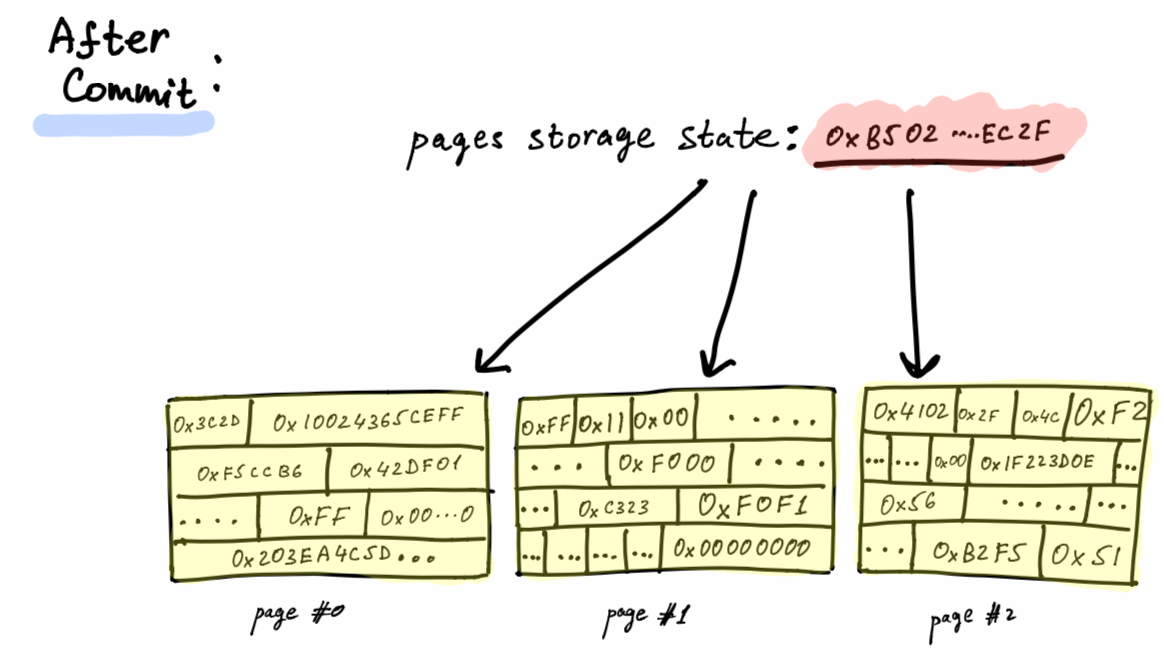 After
Commit:
pages storage state: 0xB502 ....EC2F
0x3C2D 0x10024365CEFF
0xF5CCB6 0x42DF01
.... 0xFF 0x00...0
0x203EA4C5D...
page #0
0xFF 0x11 0x00 .....
... 0xF000 ....
... 0xC323 0xF0F1
... ... ... ... 0x00000000
page #1
0x4102 0x2F 0x4C 0xF2
... ... 0x00 0x1F223D0E ...
0x56 ..... ...
... 0xB2F5 0x51
page #2